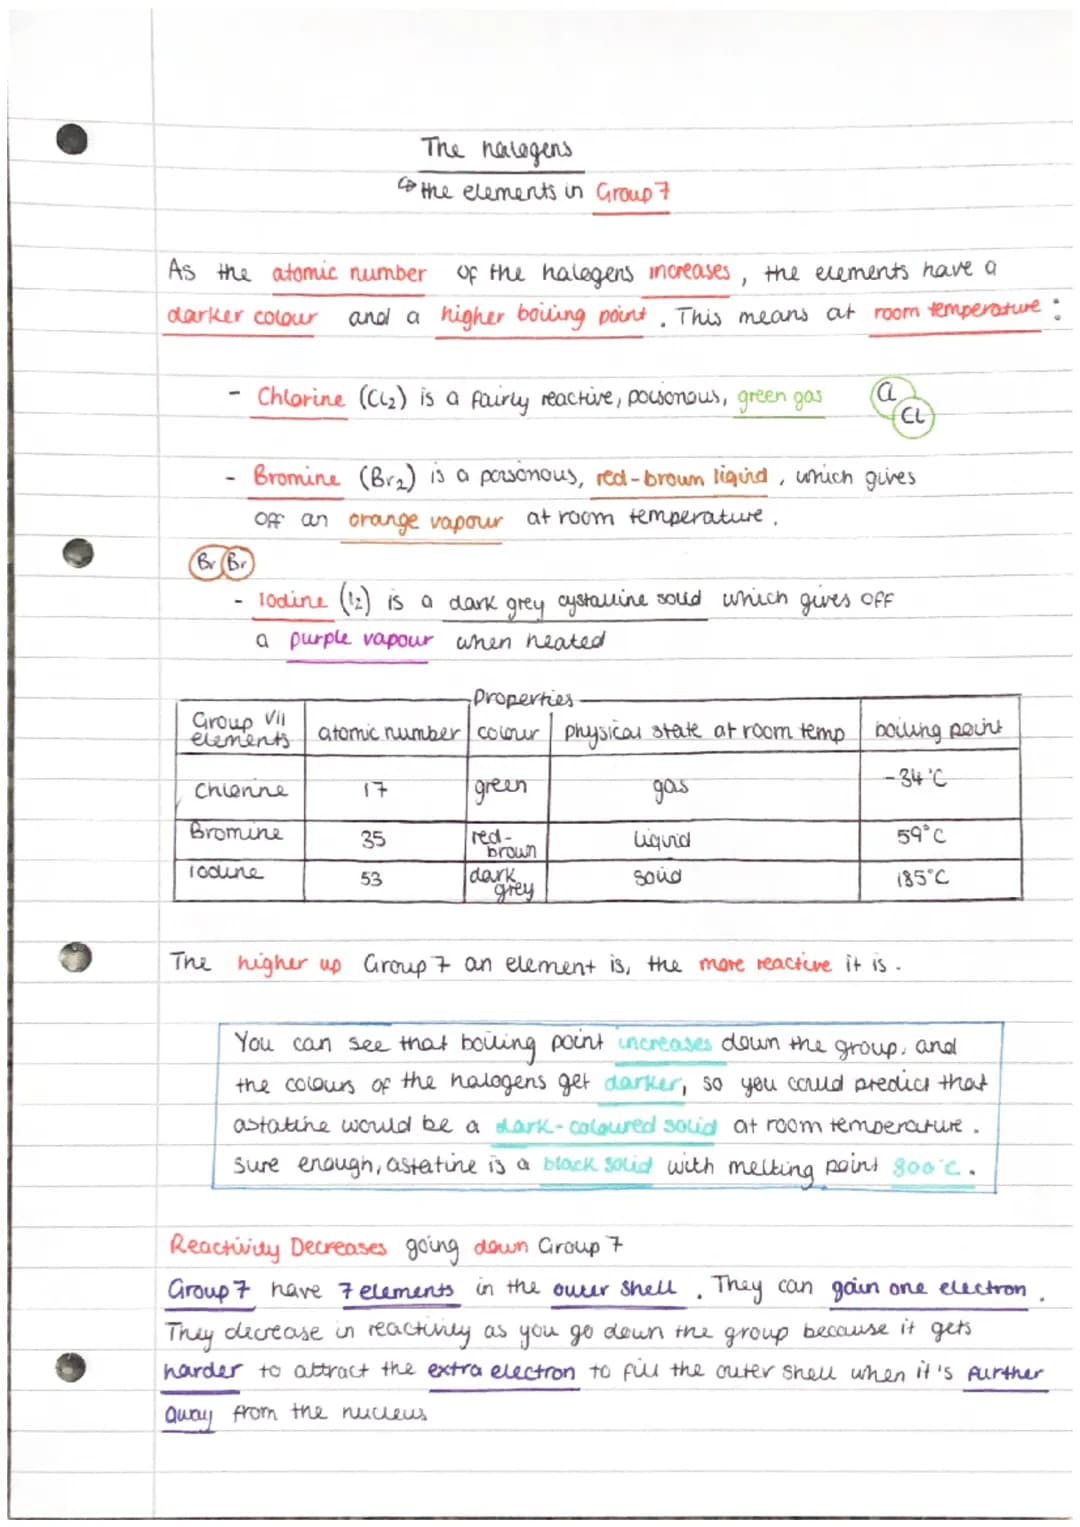 The halogens
↳ the elements in Group 7
As the atomic number of the halogens increases, the elements have a
darker colour and a higher boiling point. This means at room temperature:
- Chlorine (Cl2) is a fairly reactive, poisonous, green gas
Cl Cl
- Bromine (Br2) is a poisonous, red-brown liquid, which gives
off an orange vapour at room temperature.
Br Br
- Iodine (I2) is a dark grey cystalline solid which gives off
a purple vapour when heated
Properties
Group VII elements atomic number colour physical state at room temp boiling point
Chlorine 17 green gas -34°C
Bromine 35 red-brown liquid 59°C
Iodine 53 dark grey solid 185°C
The higher up Group 7 an element is, the more reactive it is.
You can see that boiling point increases down the group, and
the colours of the halogens get darker, so you could predict that
astatine would be a dark-coloured solid at room temperature.
Sure enough, astatine is a black solid with melting point 300°C.
Reactivity Decreases going down Group 7
Group 7 have 7 elements in the outer shell. They can gain one electron.
They decrease in reactivity as you go down the group because it gets
harder to attract the extra electron to fill the outer shell when it's further
away from the nucleus